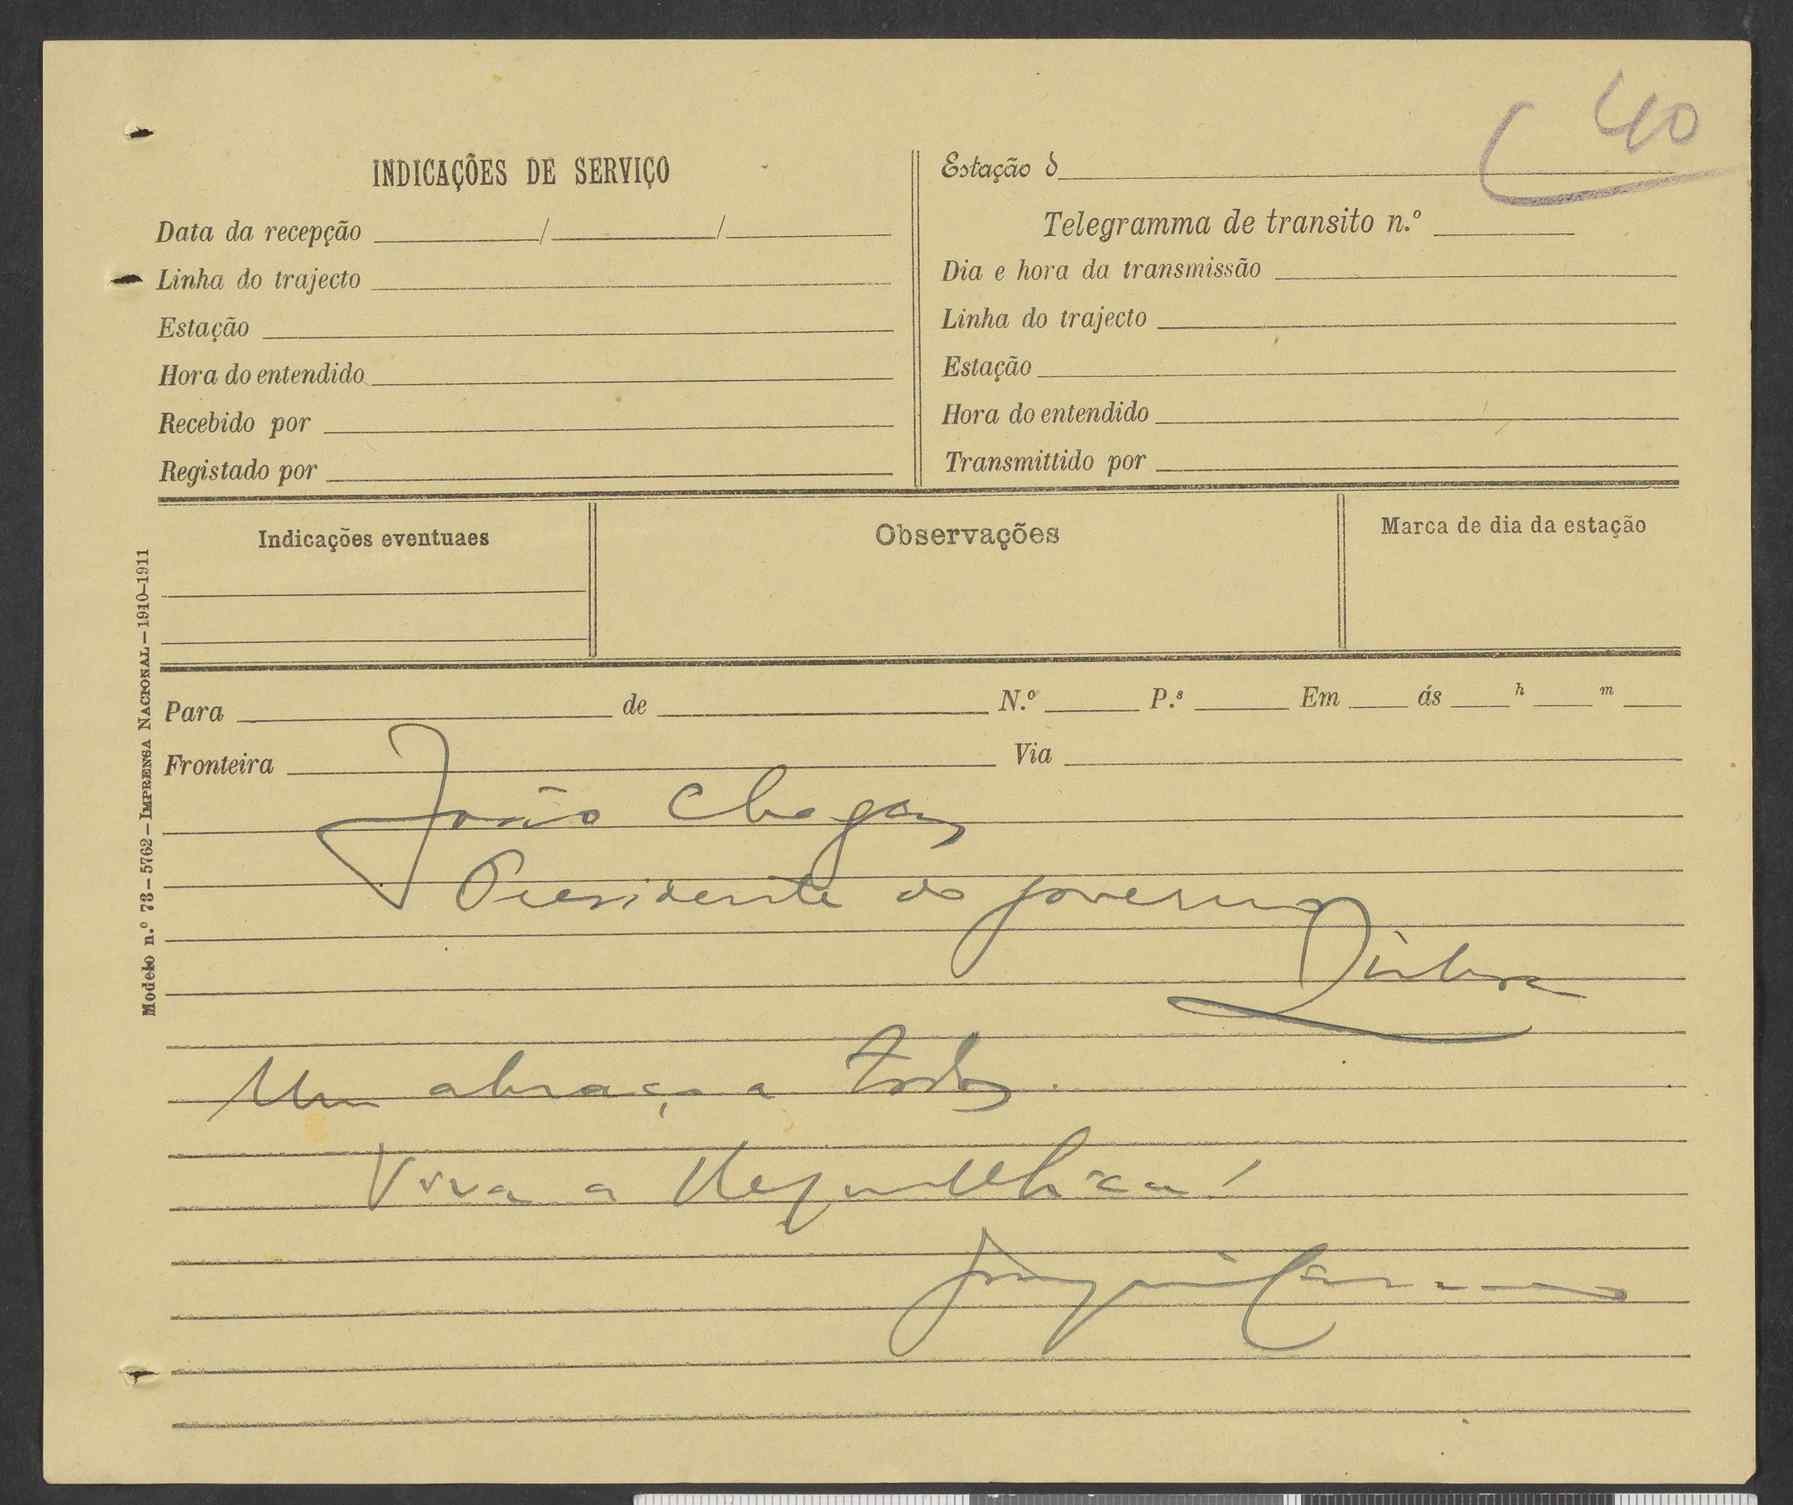 40
INDICAÇÕES DE SERVIÇO
Data da recepção / /
Linha do trajecto
Estação
Hora do entendido
Recebido por
Registado por
Estação d
Telegramma de transito n.º
Dia e hora da transmissão
Linha do trajecto
Estação
Hora do entendido
Transmittido por
Indicações eventuaes
Observações
Marca de dia da estação
Modelo n.º 73 — 5762 — IMPRENSA NACIONAL — 1910-1911
Para de N.º P.s Em ás h m
Fronteira Via
João Chagas
Presidente do governo
Lisboa
Um abraço a todos.
Viva a Republica!